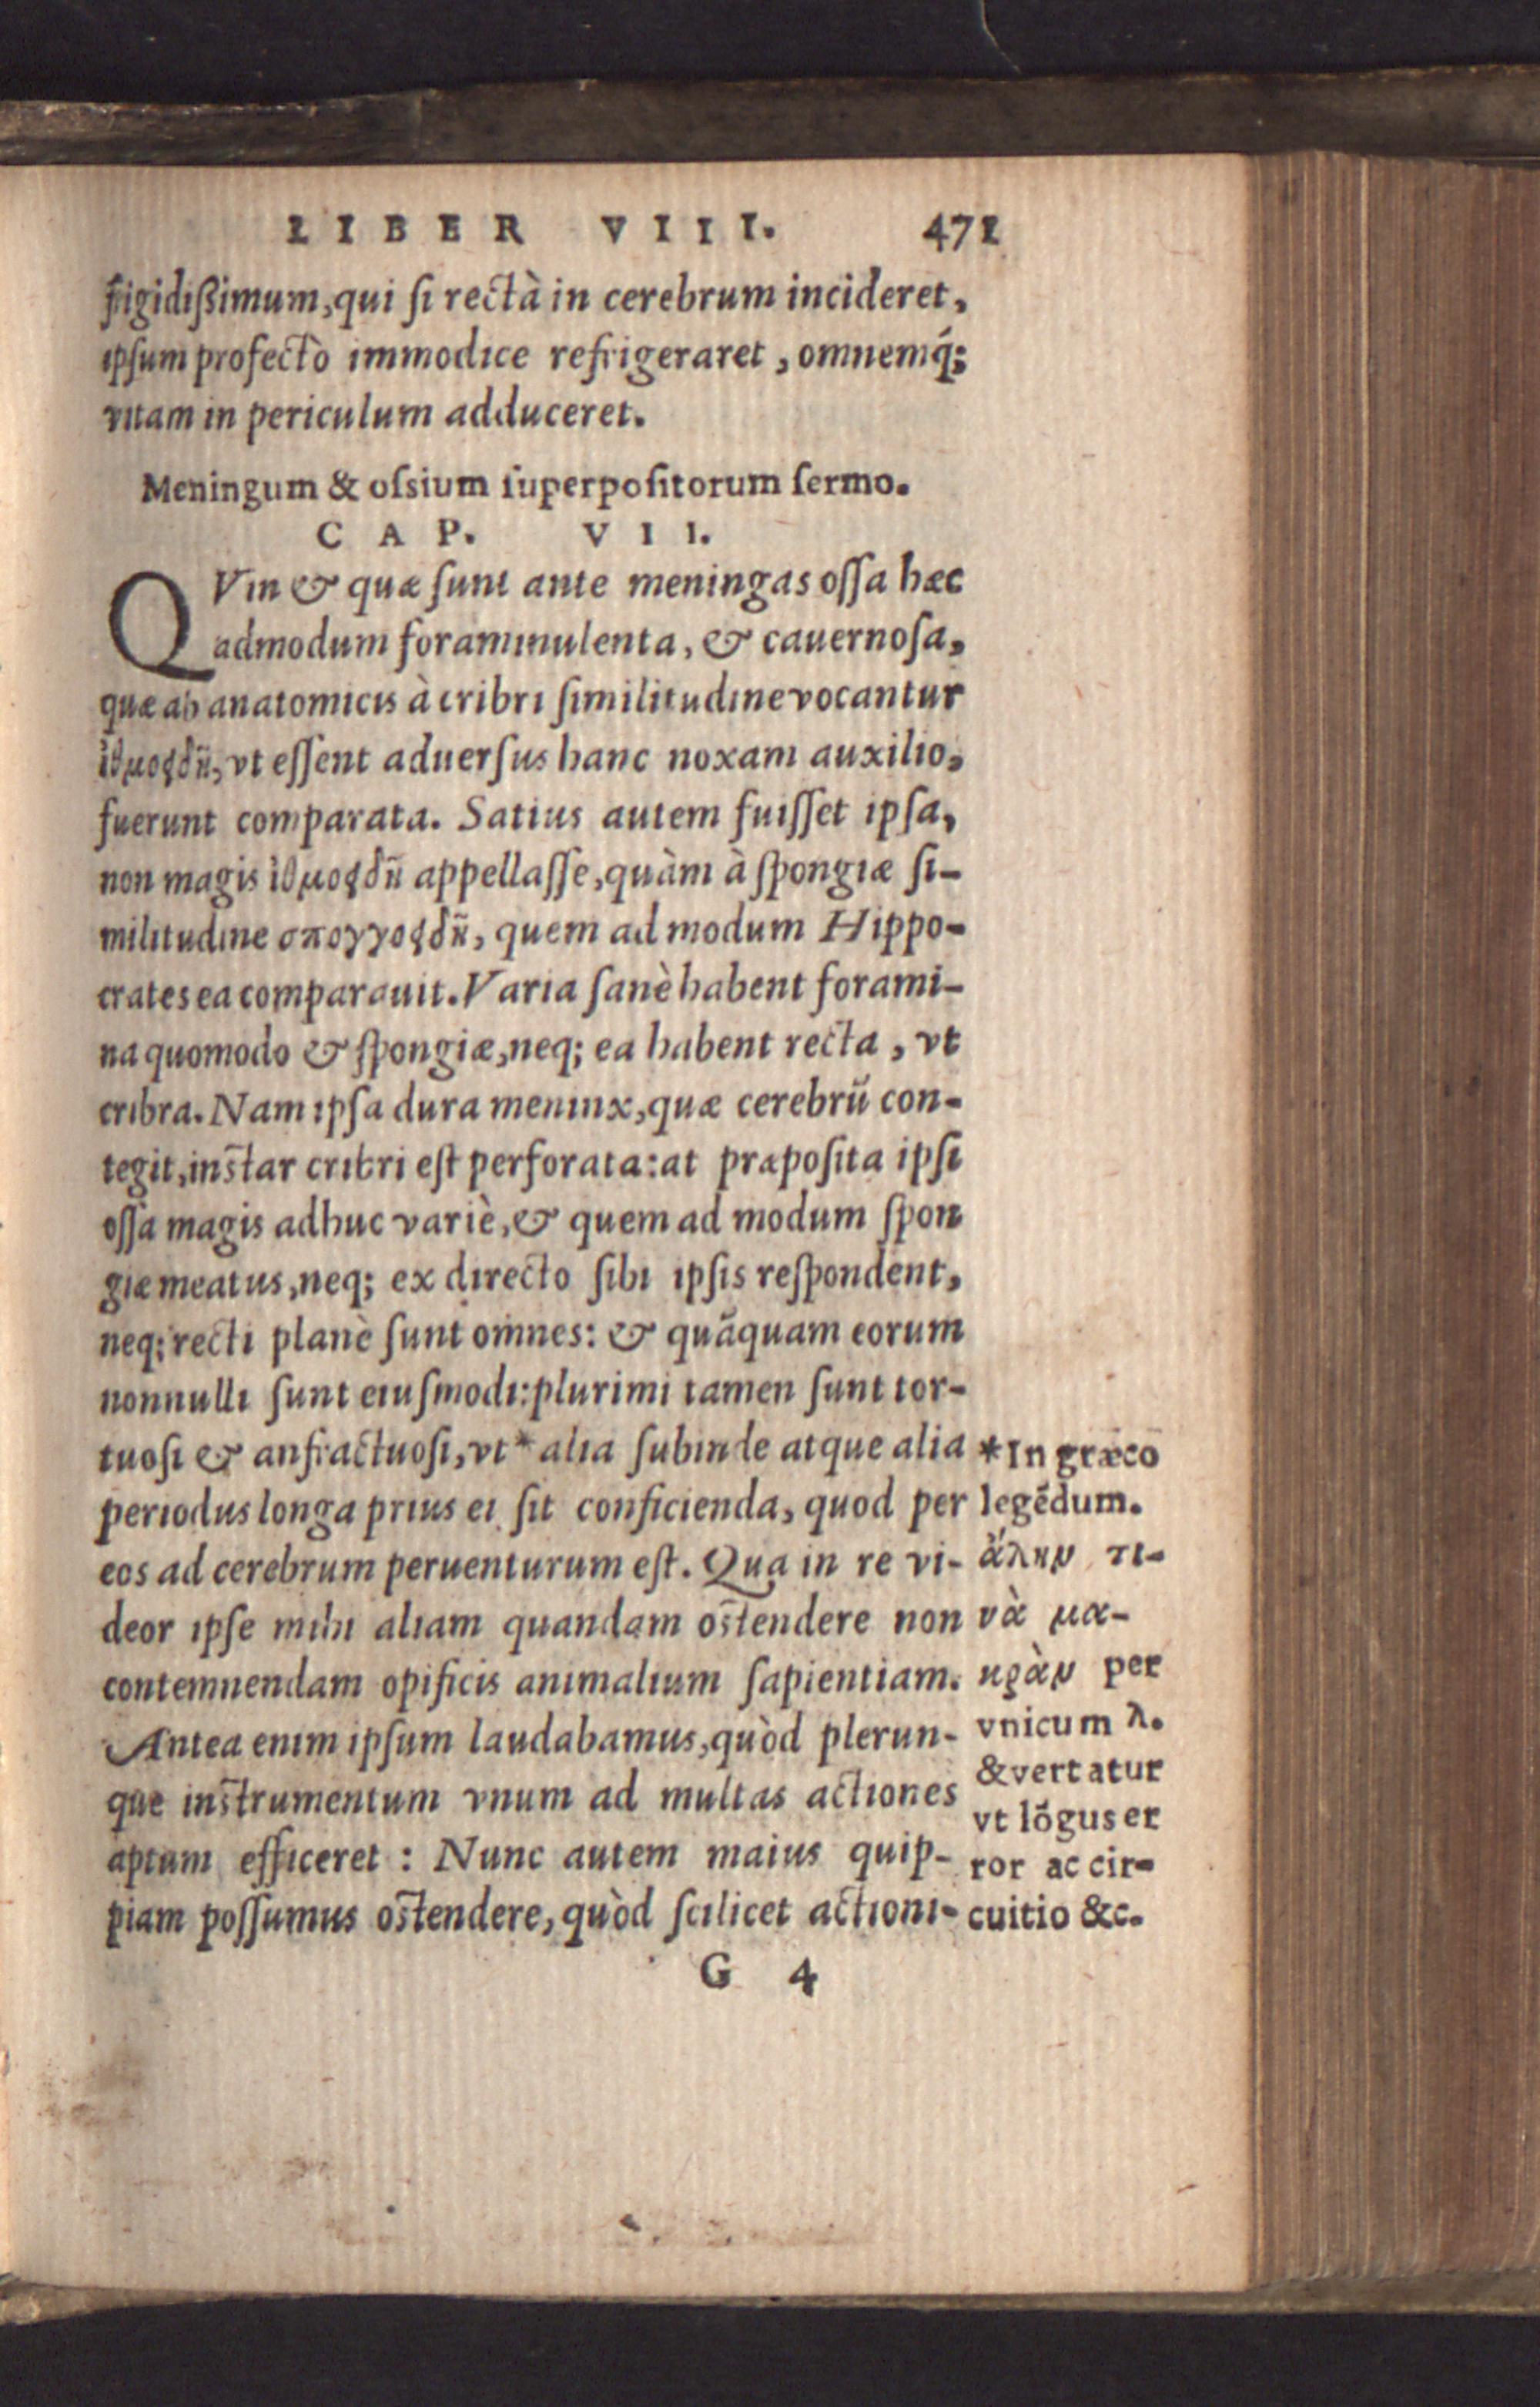 LIBER VIII. 471
frigidißimum, qui ſi rectà in cerebrum incideret,
ipſum profectò immodice refrigeraret, omnemq́;
vitam in periculum adduceret.
Meningum & oſsium ſuperpoſitorum ſermo.
CAP. VII.
QVin & quæ ſunt ante meningas oſſa hæc
admodum foraminulenta, & cauernoſa,
quæ ab anatomicis à cribri ſimilitudine vocantur
ἰθμοειδῆ, vt eſſent aduerſus hanc noxam auxilio,
fuerunt comparata. Satius autem fuiſſet ipſa,
non magis ἰθμοειδῆ appellaſſe, quàm à ſpongiæ ſi-
militudine σπογγοειδῆ, quem ad modum Hippo-
crates ea comparauit. Varia ſanè habent forami-
na quomodo & ſpongiæ, neq; ea habent recta, vt
cribra. Nam ipſa dura meninx, quæ cerebrū con-
tegit, inſtar cribri eſt perforata: at præpoſita ipſi
oſſa magis adhuc variè, & quem ad modum ſpon
giæ meatus, neq; ex directo ſibi ipſis reſpondent,
neq; recti planè ſunt omnes: & quāquam eorum
nonnulli ſunt eiuſmodi: plurimi tamen ſunt tor-
tuoſi & anfractuoſi, vt * alia ſubinde atque alia
periodus longa prius ei ſit conficienda, quod per
eos ad cerebrum peruenturum eſt. Qua in re vi-
deor ipſe mihi aliam quandam oſtendere non
contemnendam opificis animalium ſapientiam.
Antea enim ipſum laudabamus, quòd plerun-
que inſtrumentum vnum ad multas actiones
aptum efficeret : Nunc autem maius quip-
piam poſſumus oſtendere, quòd ſcilicet actioni-
*In græco
legēdum.
ἄλην τι-
νὰ μα-
κρὰν per
vnicum λ.
& vertatur
vt lōgus er
ror ac cir-
cuitio &c.
G 4